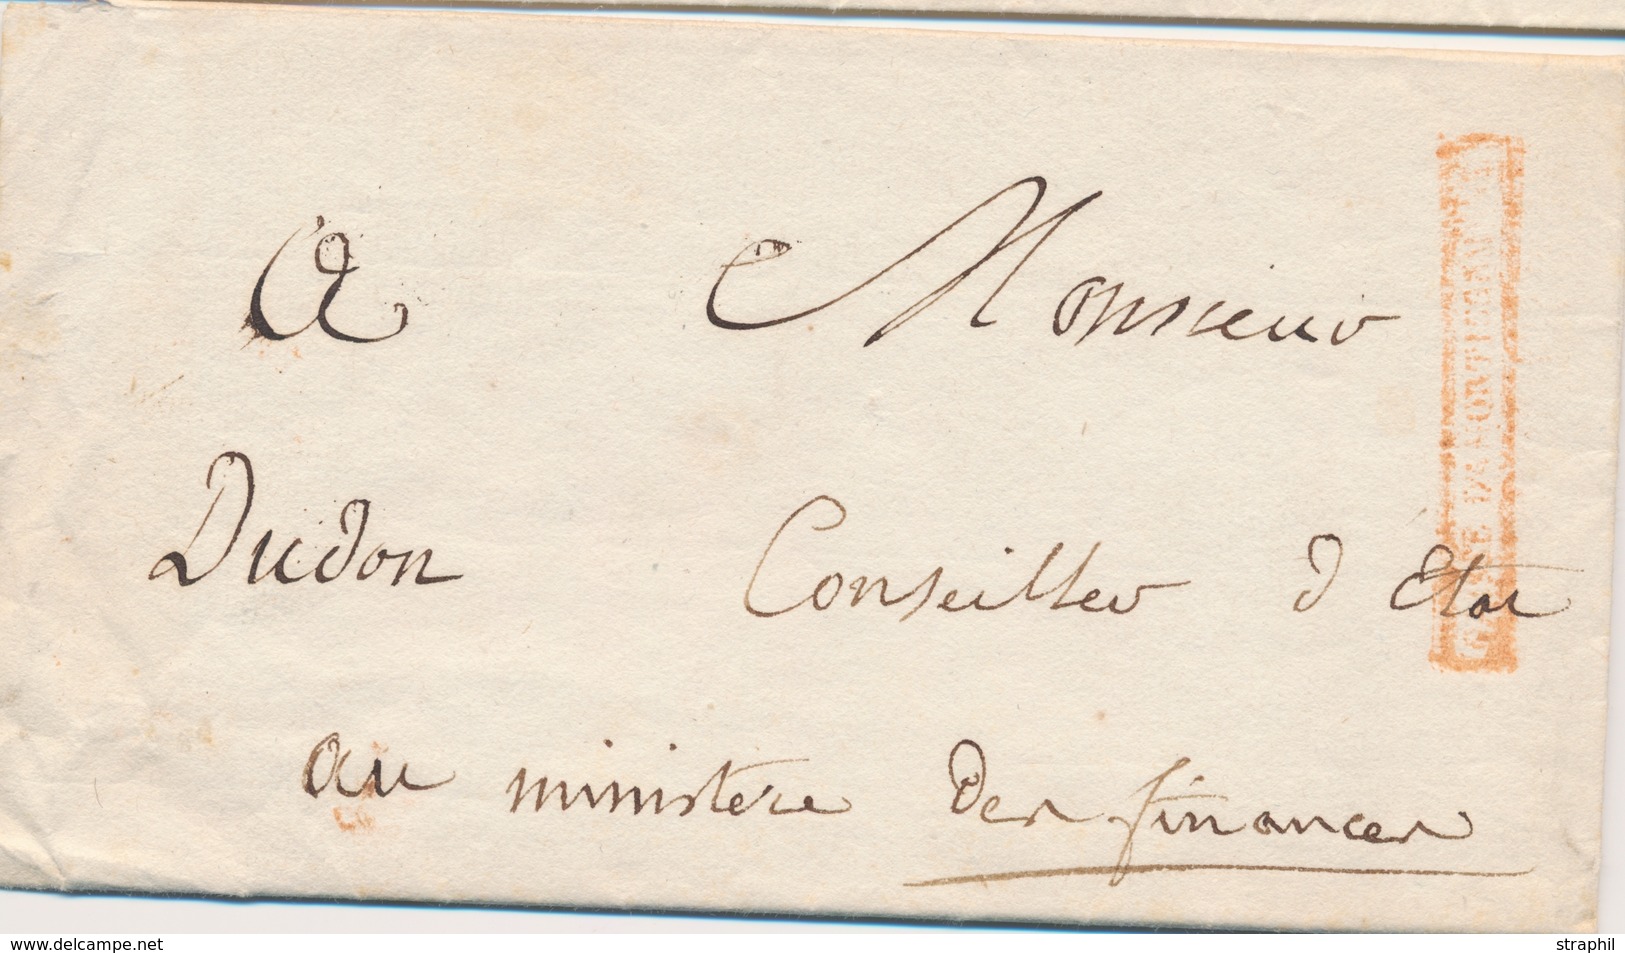 A Monsieur
Dudon Conseiller d'État
au ministère des finances
delcampe.net
straphil